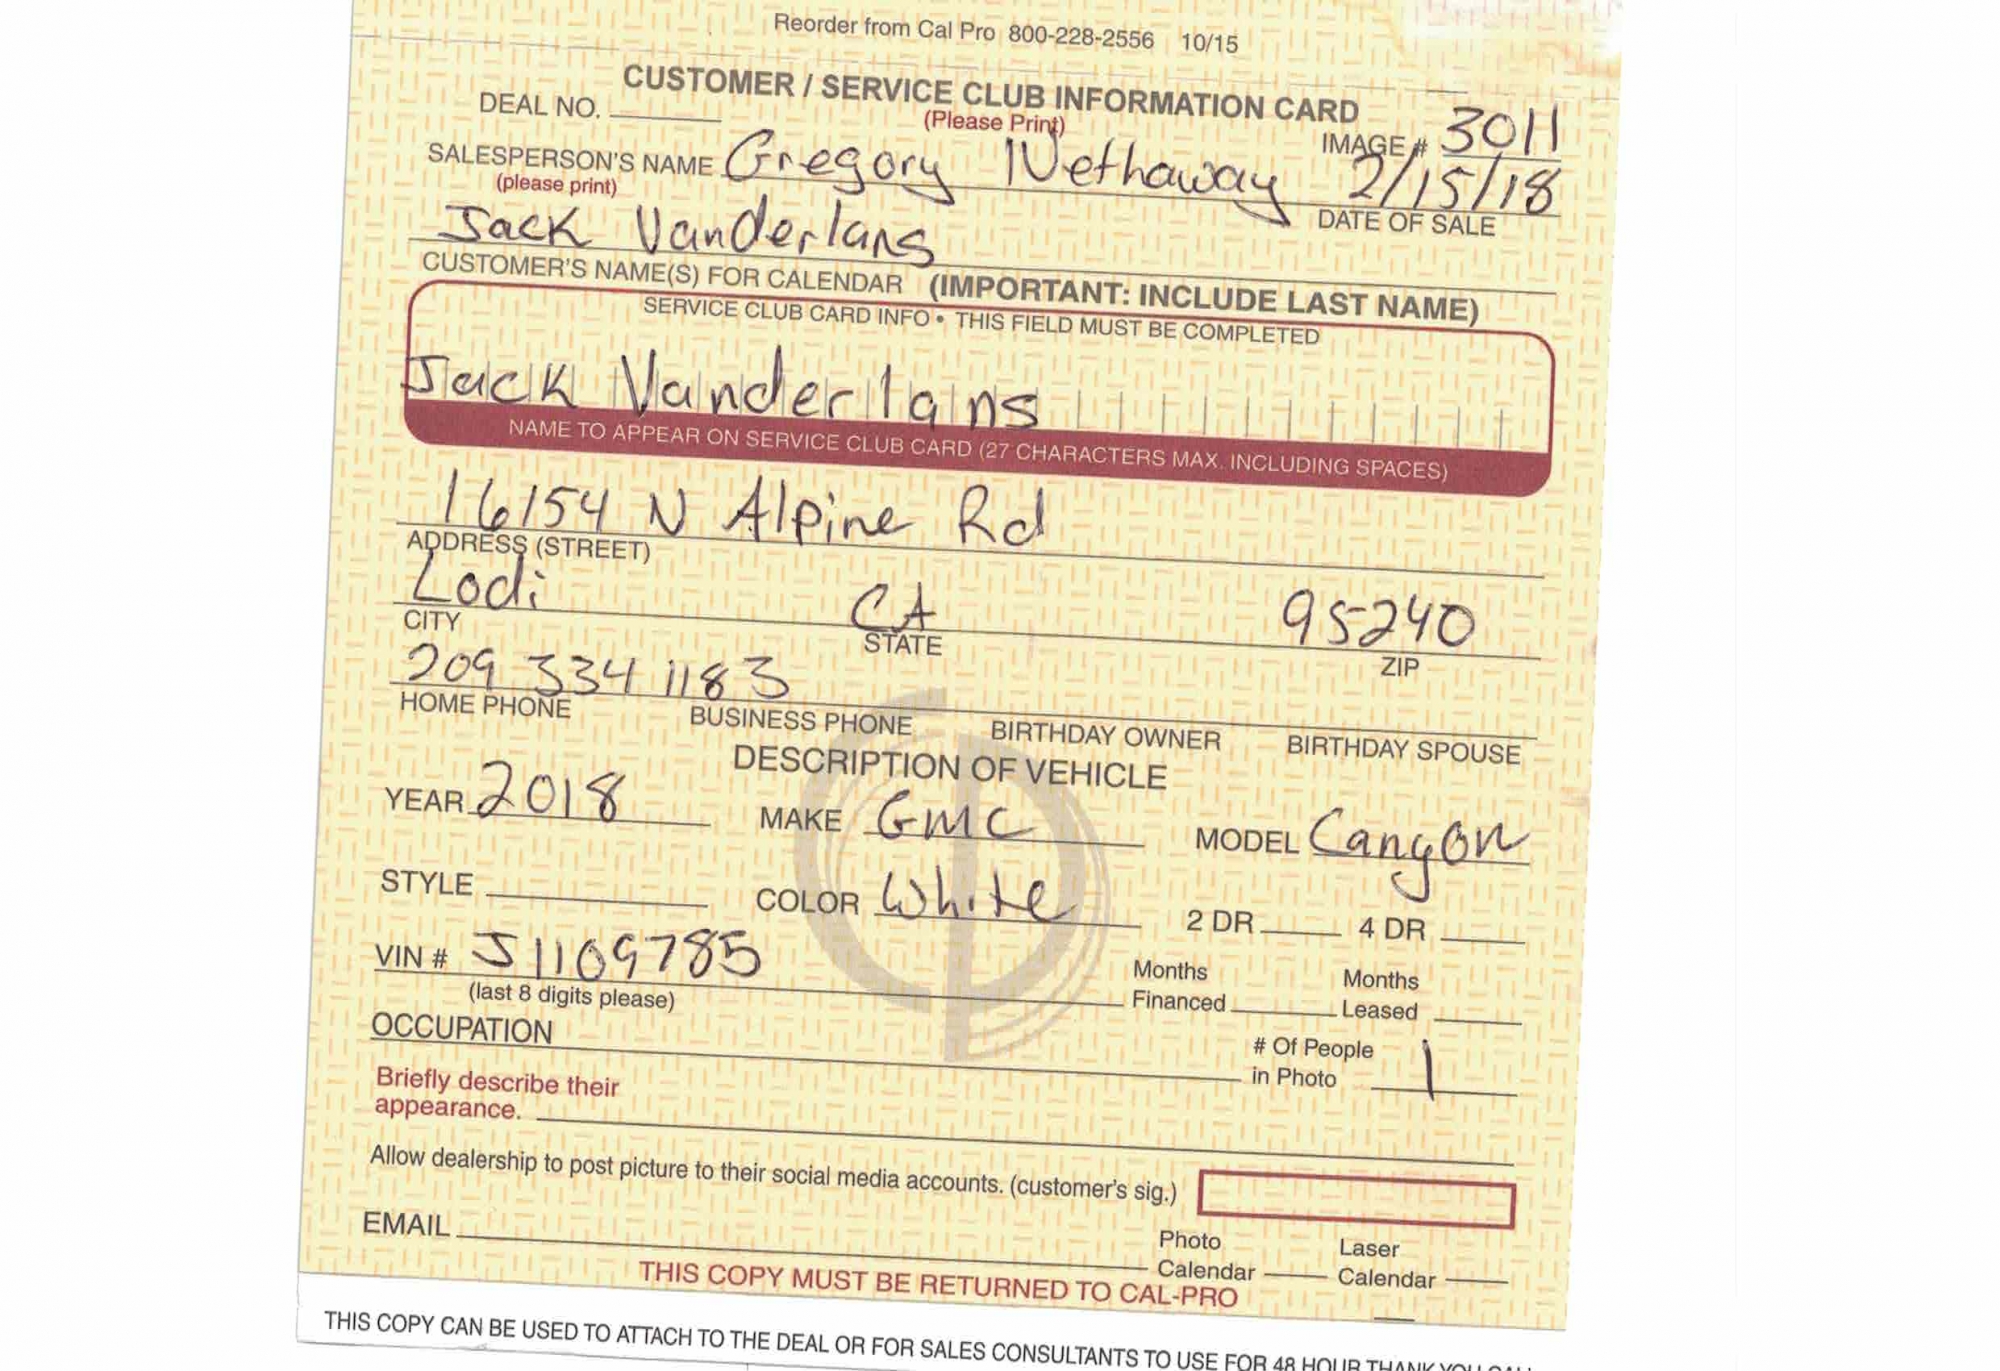 Reorder from Cal Pro 800-228-2556 10/15
CUSTOMER / SERVICE CLUB INFORMATION CARD
DEAL NO.
(Please Print)
IMAGE # 3011
SALESPERSON'S NAME Gregory Nethaway 2/15/18
(please print)
DATE OF SALE
Jack Vanderlans
CUSTOMER'S NAME(S) FOR CALENDAR (IMPORTANT: INCLUDE LAST NAME)
SERVICE CLUB CARD INFO • THIS FIELD MUST BE COMPLETED
Jack Vanderlans
NAME TO APPEAR ON SERVICE CLUB CARD (27 CHARACTERS MAX. INCLUDING SPACES)
16154 N Alpine Rd
ADDRESS (STREET)
Lodi CA 95240
CITY STATE ZIP
209 334 1183
HOME PHONE BUSINESS PHONE BIRTHDAY OWNER BIRTHDAY SPOUSE
DESCRIPTION OF VEHICLE
YEAR 2018 MAKE GMC MODEL Canyon
STYLE COLOR White 2 DR 4 DR
VIN # J1109785
(last 8 digits please)
Months Financed Months Leased
OCCUPATION
# Of People in Photo 1
Briefly describe their
appearance.
Allow dealership to post picture to their social media accounts. (customer's sig.)
EMAIL
Photo Calendar Laser Calendar
THIS COPY MUST BE RETURNED TO CAL-PRO
THIS COPY CAN BE USED TO ATTACH TO THE DEAL OR FOR SALES CONSULTANTS TO USE FOR 48 HOUR THANK YOU